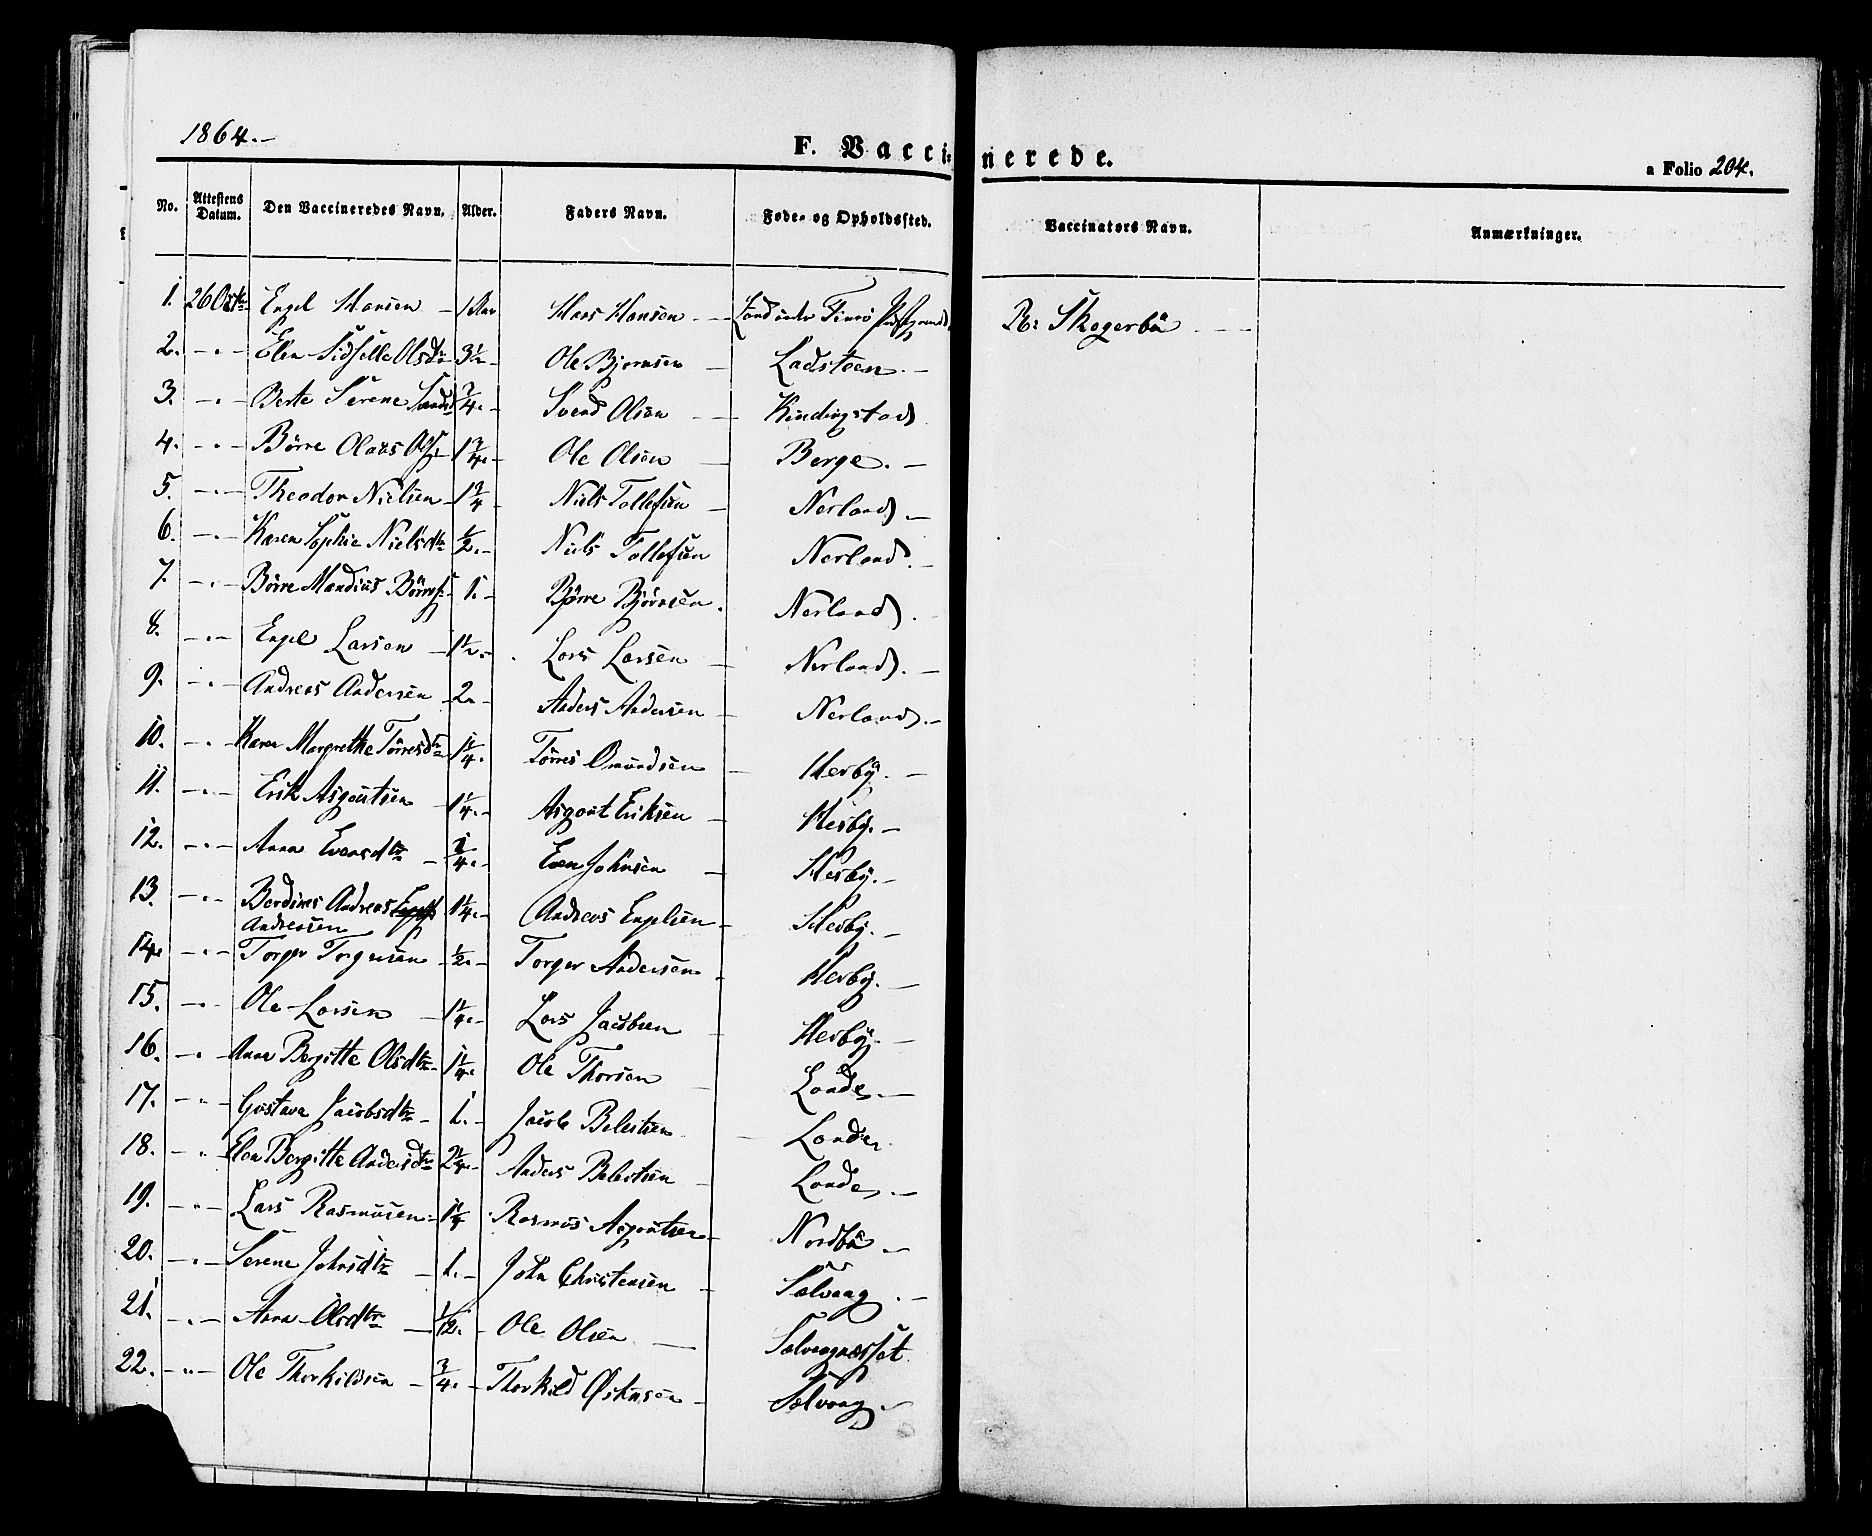 1864.-
F. Vaccinerede.
a Folio 204.
No. Attestens Datum. Den Vaccineredes Navn. Alder. Faders Navn. Føde- og Opholdssted. Vaccinators Navn. Anmærkninger.
1. 26 Octbr Engel Hansen - 1 Aar Hans Hansen - under Finnø R: Skogerbø - -
2. - " - Elen Sidselle Olsdtr 3½ - Ole Bjørnsen - Ladsteen. -
3. - " - Berte Serene Svendsd 3/4. - Svend Olsen - Kindingstad
4. - " - Børre Olaus Ols. - 1 3/4. - Ole Olsen - Berge. -
5. - " - Theodor Nielsen - 1 3/4 - Niels Tollefsen - Nerland. -
6. - " - Karen Sophie Nielsdtr ½. - Niels Tollefsen Nerland. -
7. - " - Børre Mandius Børres. 1. - Børre Bjørnsen. Nerland.
8. - " - Engel Larsen - 1½. - Lars Larsen - Nerland. -
9. - " - Andreas Andersen - 2 " - Anders Andersen - Nerland. -
10. - " - Karen Margrethe Tørresdtr 1 1/4. Tørres Omundsen - Hesby. -
11. - " - Erik Asgoutsen - 1 1/4. - Asgout Eriksen - Hesby. -
12. - " - Anna Evensdtr - 1/4. - Even Johnsen - Hesby. -
13. - " - Berdines Andreas 1 1/4. - Andreas Engelsen - Hesby. -
Andreasen
14. - " - Torger Torgersen - ½. - Torger Andersen - Hesby. -
15. - " - Ole Larsen - 1 1/4. - Lars Jacobsen - Hesby. -
16. - " Anne Bergitte Olsdtr - 1 1/4. Ole Thorsen - Lande. -
17. - " - Gustava Jacobsdtr - 1. - Jacob Belestsen - Lande.
18. - " Elen Bergitte Andersdtr 2 1/4. - Anders Belestsen - Lande. -
19. - " - Lars Rasmusen - 1 1/4 Rasmus Asgoutsen - Nordbø -
20. - " - Serene Johnsdtr - 1. - John Christensen - Sælvaag. -
21. - " - Anna Olsdtr - 1/12. - Ole Olsen - Sælvaagnæsset
22. - " - Ole Thorkildsen - 3/4. - Thorkild Østensen - Sælvaag. -